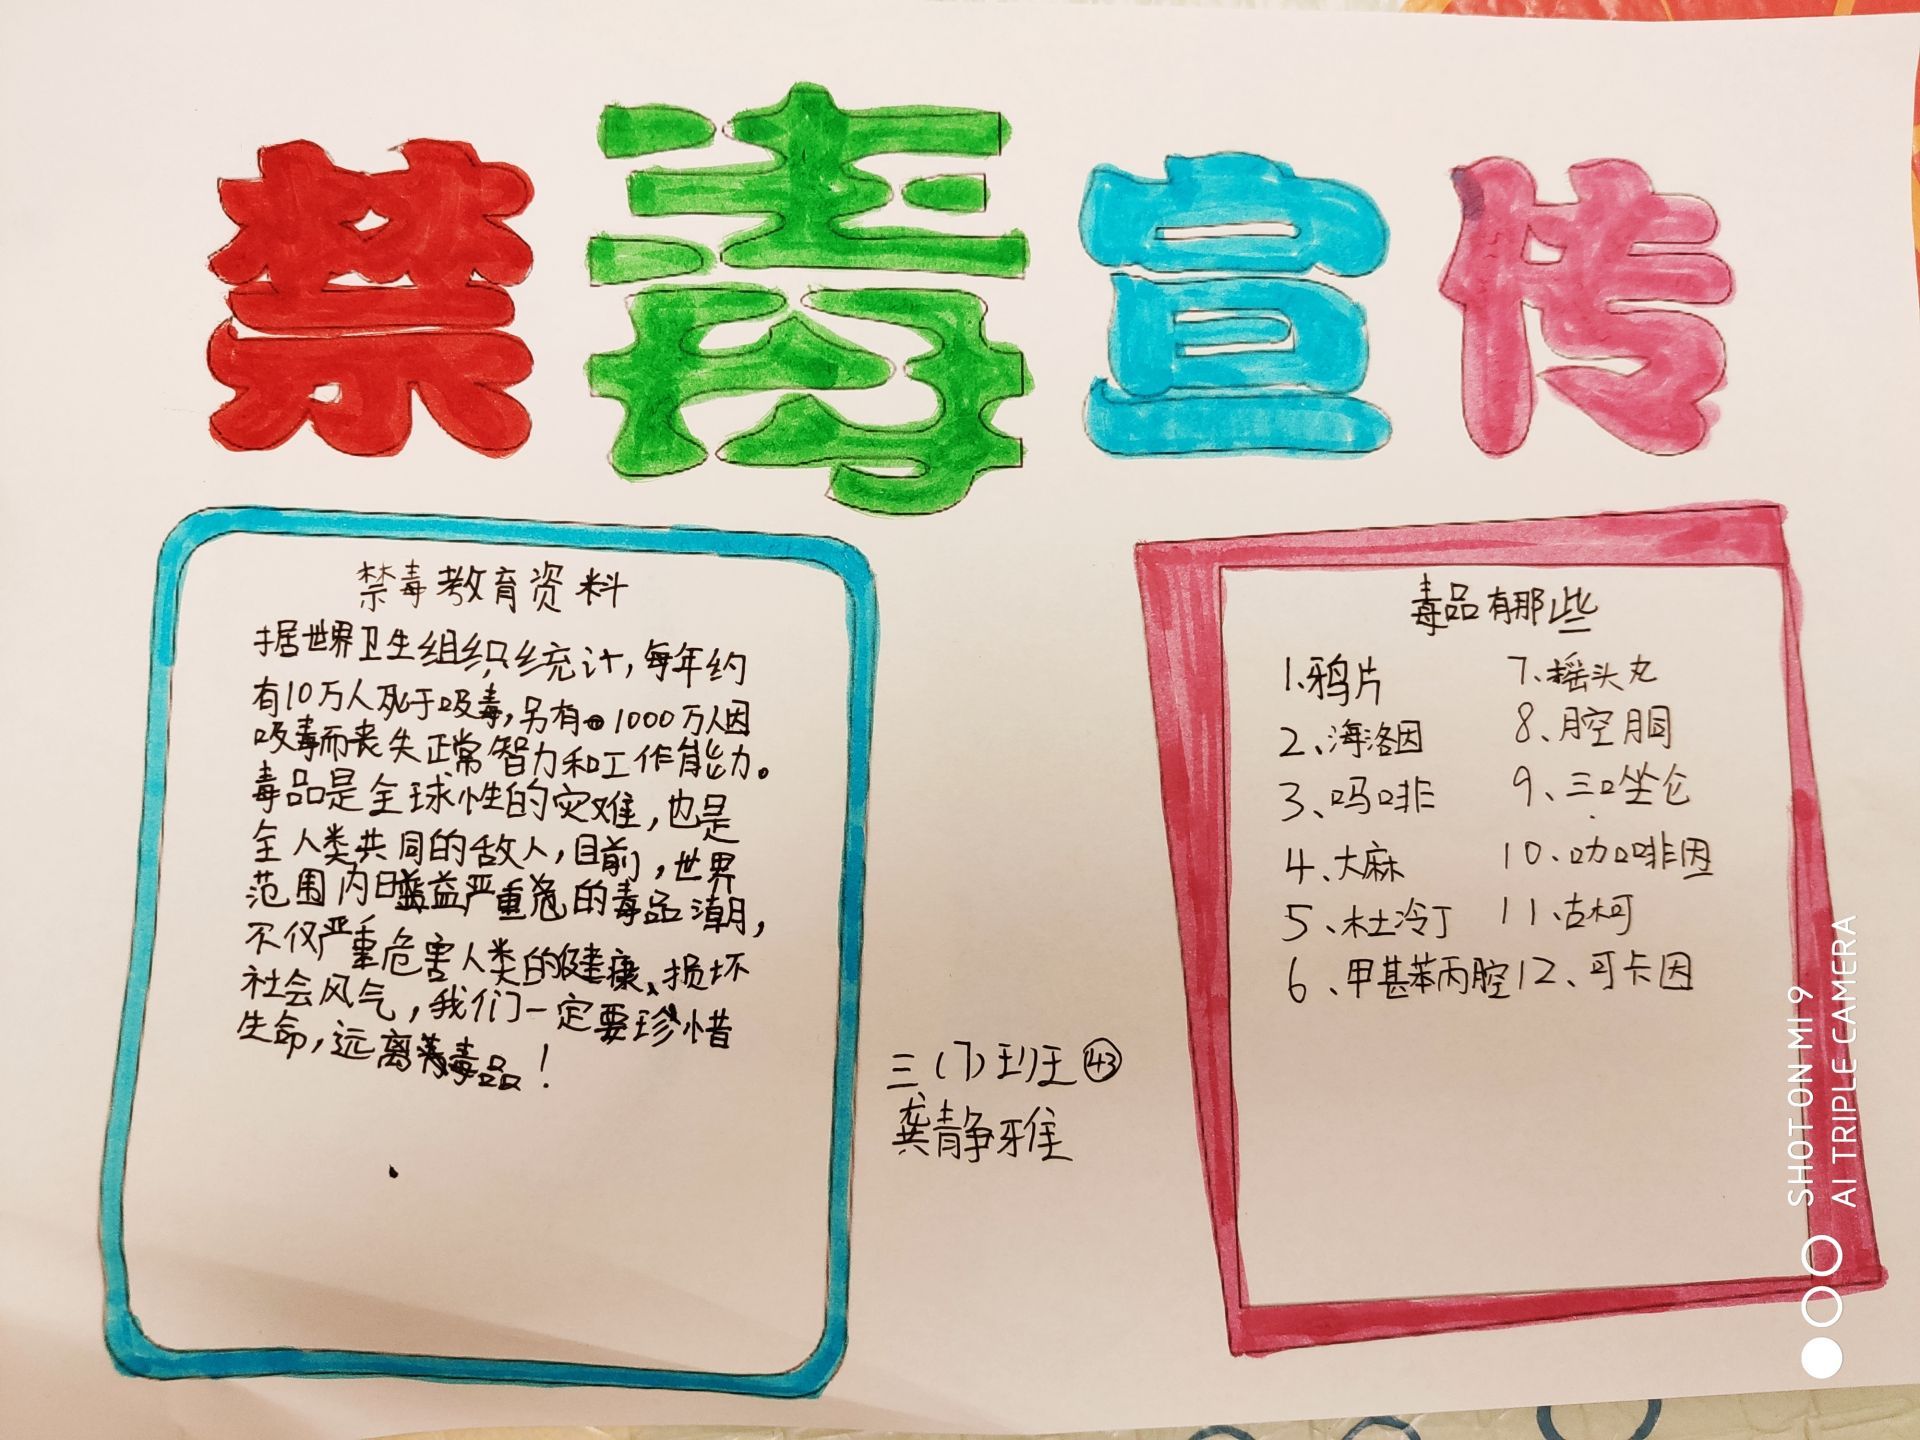 禁毒宣传
禁毒教育资料
据世界卫生组织统计,每年约
有10万人死于吸毒,另有1000万人因
吸毒而丧失正常智力和工作能力。
毒品是全球性的灾难,也是
全人类共同的敌人,目前,世界
范围内日益严重的毒品潮,
不仅严重危害人类的健康、损坏
社会风气,我们一定要珍惜
生命,远离毒品!
三(7)班㊸
龚静雅
毒品有那些
1、鸦片
2、海洛因
3、吗啡
4、大麻
5、杜冷丁
6、甲基苯丙腔
7、摇头丸
8、腔胴
9、三唑仑
10、咖啡因
11、古柯
12、可卡因
SHOT ON MI 9
AI TRIPLE CAMERA